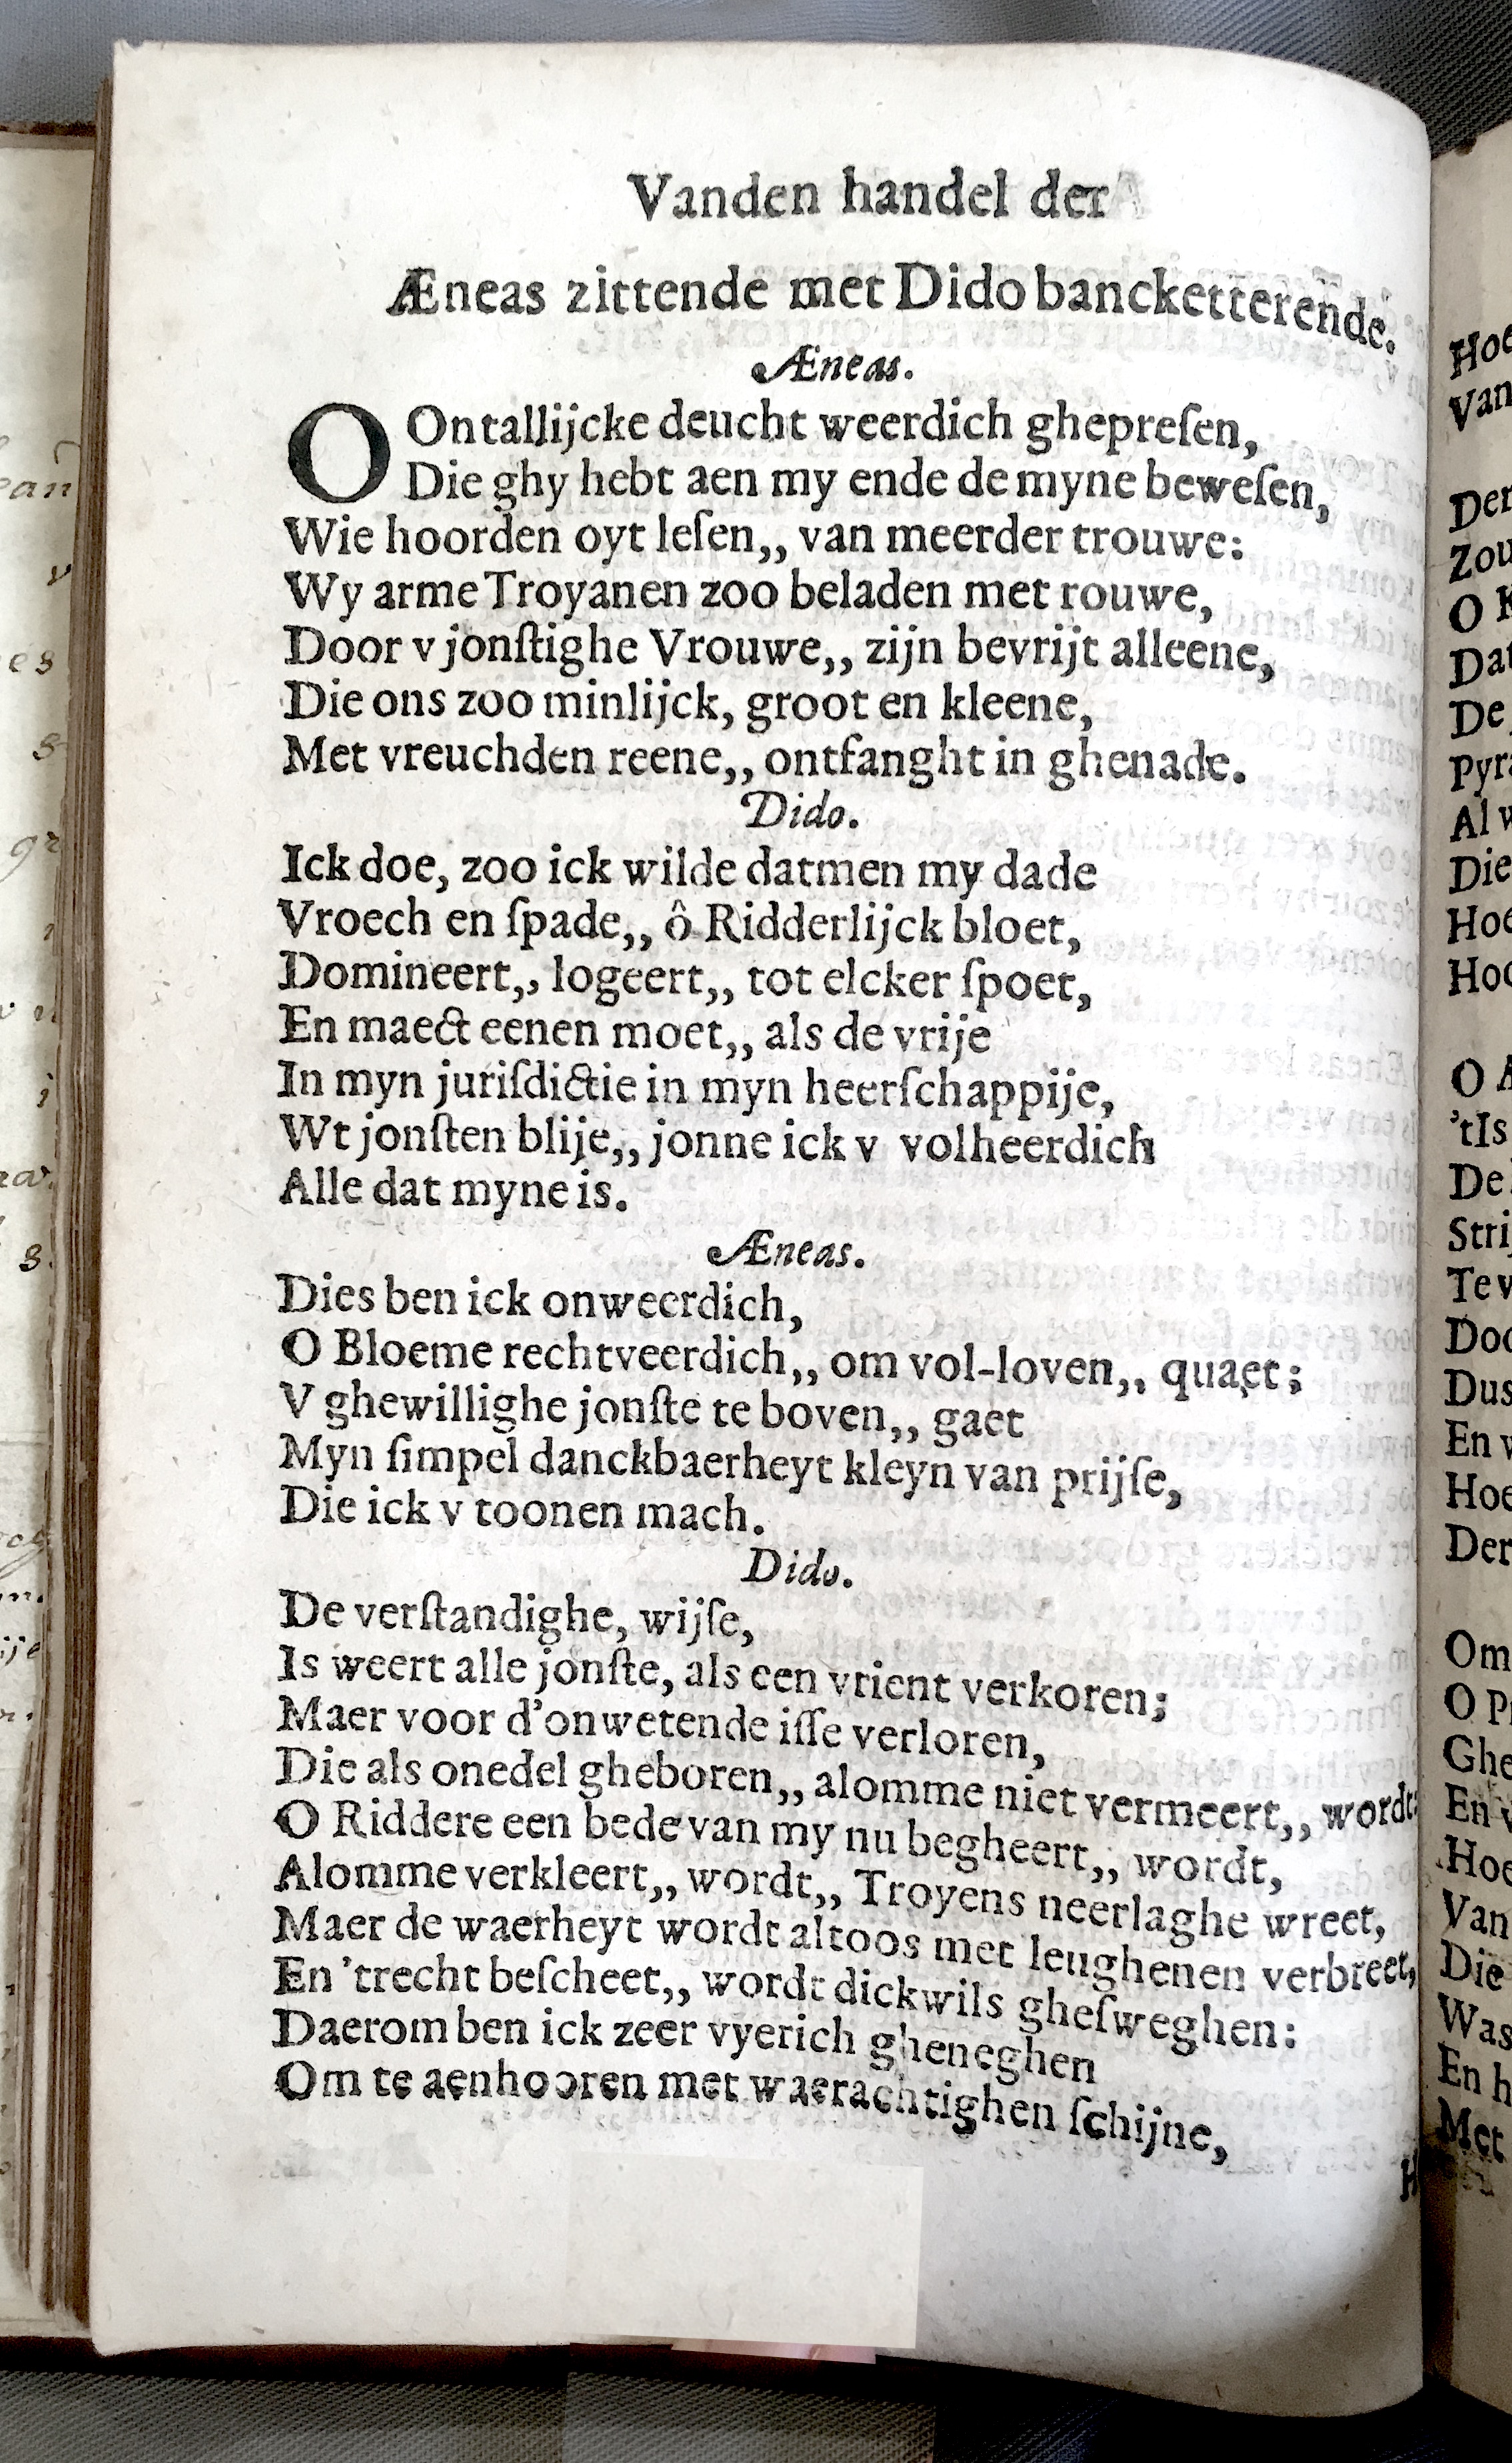 Vanden handel der
Æneas zittende met Dido bancketterende.
Æneas.
O Ontallijcke deucht weerdich ghepreſen,
Die ghy hebt aen my ende de myne beweſen,
Wie hoorden oyt leſen,, van meerder trouwe:
Wy arme Troyanen zoo beladen met rouwe,
Door v jonſtighe Vrouwe,, zijn bevrijt alleene,
Die ons zoo minlijck, groot en kleene,
Met vreuchden reene,, ontfanght in ghenade.
Dido.
Ick doe, zoo ick wilde datmen my dade
Vroech en ſpade,, ô Ridderlijck bloet,
Domineert,, logeert,, tot elcker ſpoet,
En maect eenen moet,, als de vrije
In myn juriſdictie in myn heerſchappije,
Wt jonſten blije,, jonne ick v volheerdich
Alle dat myne is.
Æneas.
Dies ben ick onweerdich,
O Bloeme rechtveerdich,, om vol-loven,, quaet;
V ghewillighe jonſte te boven,, gaet
Myn ſimpel danckbaerheyt kleyn van prijſe,
Die ick v toonen mach.
Dido.
De verſtandighe, wijſe,
Is weert alle jonſte, als een vrient verkoren;
Maer voor d'onwetende iſſe verloren,
Die als onedel gheboren,, alomme niet vermeert,, wordt:
O Riddere een bede van my nu begheert,, wordt,
Alomme verkleert,, wordt,, Troyens neerlaghe wreet,
Maer de waerheyt wordt altoos met leughenen verbreet,
En 'trecht beſcheet,, wordt dickwils gheſweghen:
Daerom ben ick zeer vyerich gheneghen
Om te aenhooren met waerachtighen ſchijne,
Hoe
Van
Der
Zou
O K
Dat
De
Pyra
Al w
Die
Hoe
Hoe
O A
'tIs
De
Stri
Te v
Doo
Dus
En w
Hoe
Der
Om
O P
Ghe
En v
Hoe
Van
Die
Was
En h
Met